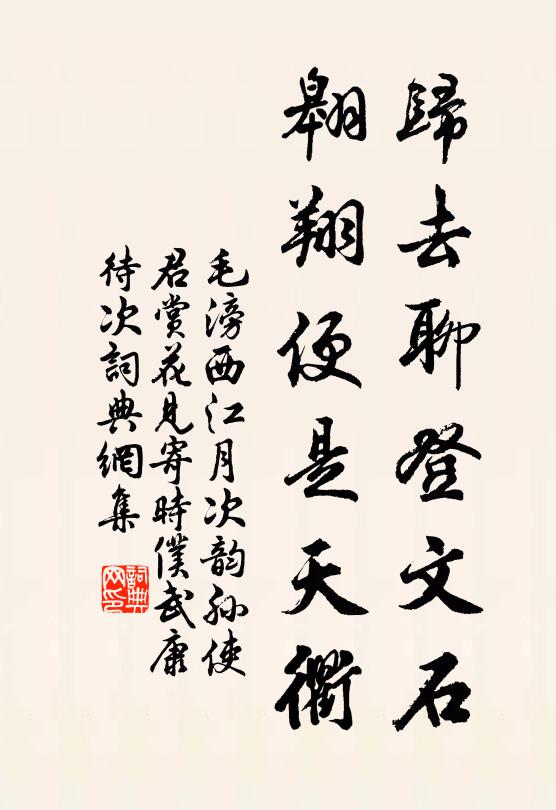 歸去聊登文石
翱翔便是天衢
毛滂西江月次韵孙使
君賞花見寄時僕武康
待次詞典網集
詞典网印